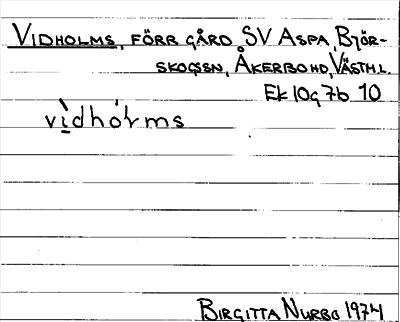 VIDHOLMS, FÖRR GÅRD SV ASPA, BJÖR-
SKOGSSN, ÅKERBO HD, VÄSTML.
Ek 10g 7b 10
vìdhólms
BIRGITTA NURBO 1974